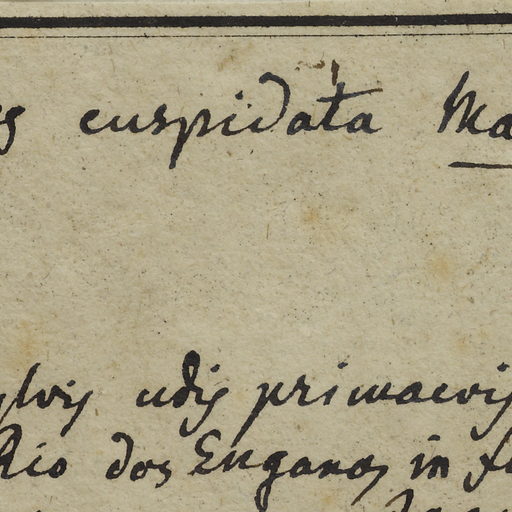 cuspidata Ma
ylvis udis primaevis
Rio dos Enganos in